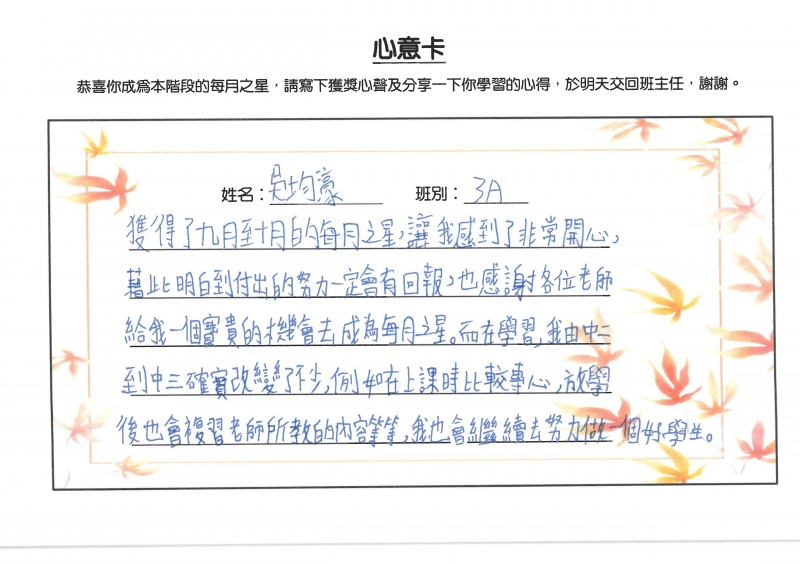 心意卡
恭喜你成為本階段的每月之星，請寫下獲獎心聲及分享一下你學習的心得，於明天交回班主任，謝謝。
姓名：吳均濠 班別：3A
獲得了九月至十月的每月之星，讓我感到了非常開心，
藉此明白到付出的努力一定會有回報，也感謝各位老師
給我一個寶貴的機會去成為每月之星。而在學習，我由中二
到中三確實改變了不少，例如在上課時比較專心，放學
後也會複習老師所教的內容等等，我也會繼續去努力做一個好學生。